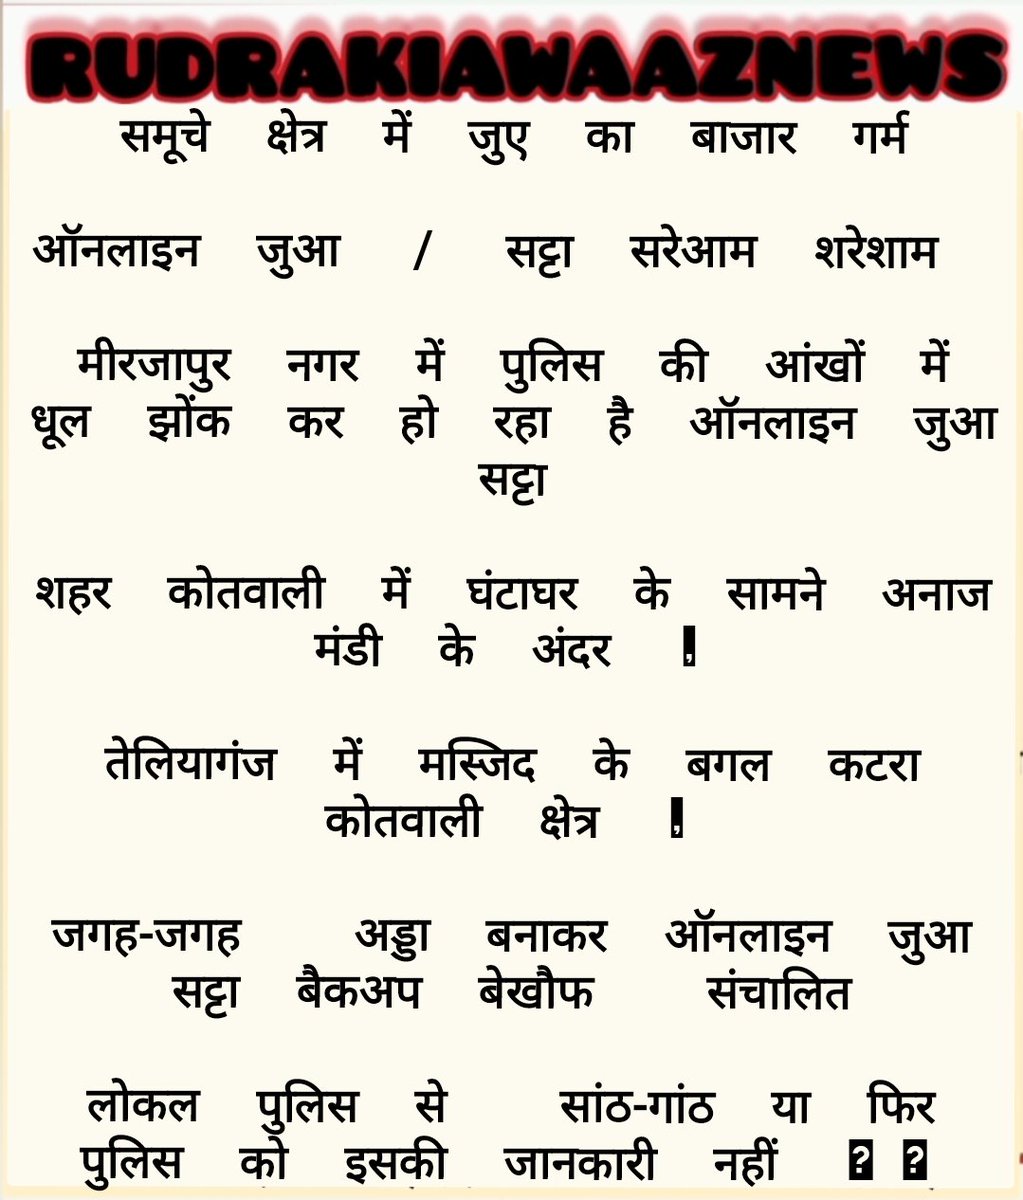 RUDRAKIAWAAZNEWS
समूचे क्षेत्र में जुए का बाजार गर्म
ऑनलाइन जुआ / सट्टा सरेआम शरेशाम
मीरजापुर नगर में पुलिस की आंखों में
धूल झोंक कर हो रहा है ऑनलाइन जुआ
सट्टा
शहर कोतवाली में घंटाघर के सामने अनाज
मंडी के अंदर ,
तेलियागंज में मस्जिद के बगल कटरा
कोतवाली क्षेत्र ,
जगह-जगह अड्डा बनाकर ऑनलाइन जुआ
सट्टा बैकअप बेखौफ संचालित
लोकल पुलिस से सांठ-गांठ या फिर
पुलिस को इसकी जानकारी नहीं ? ?